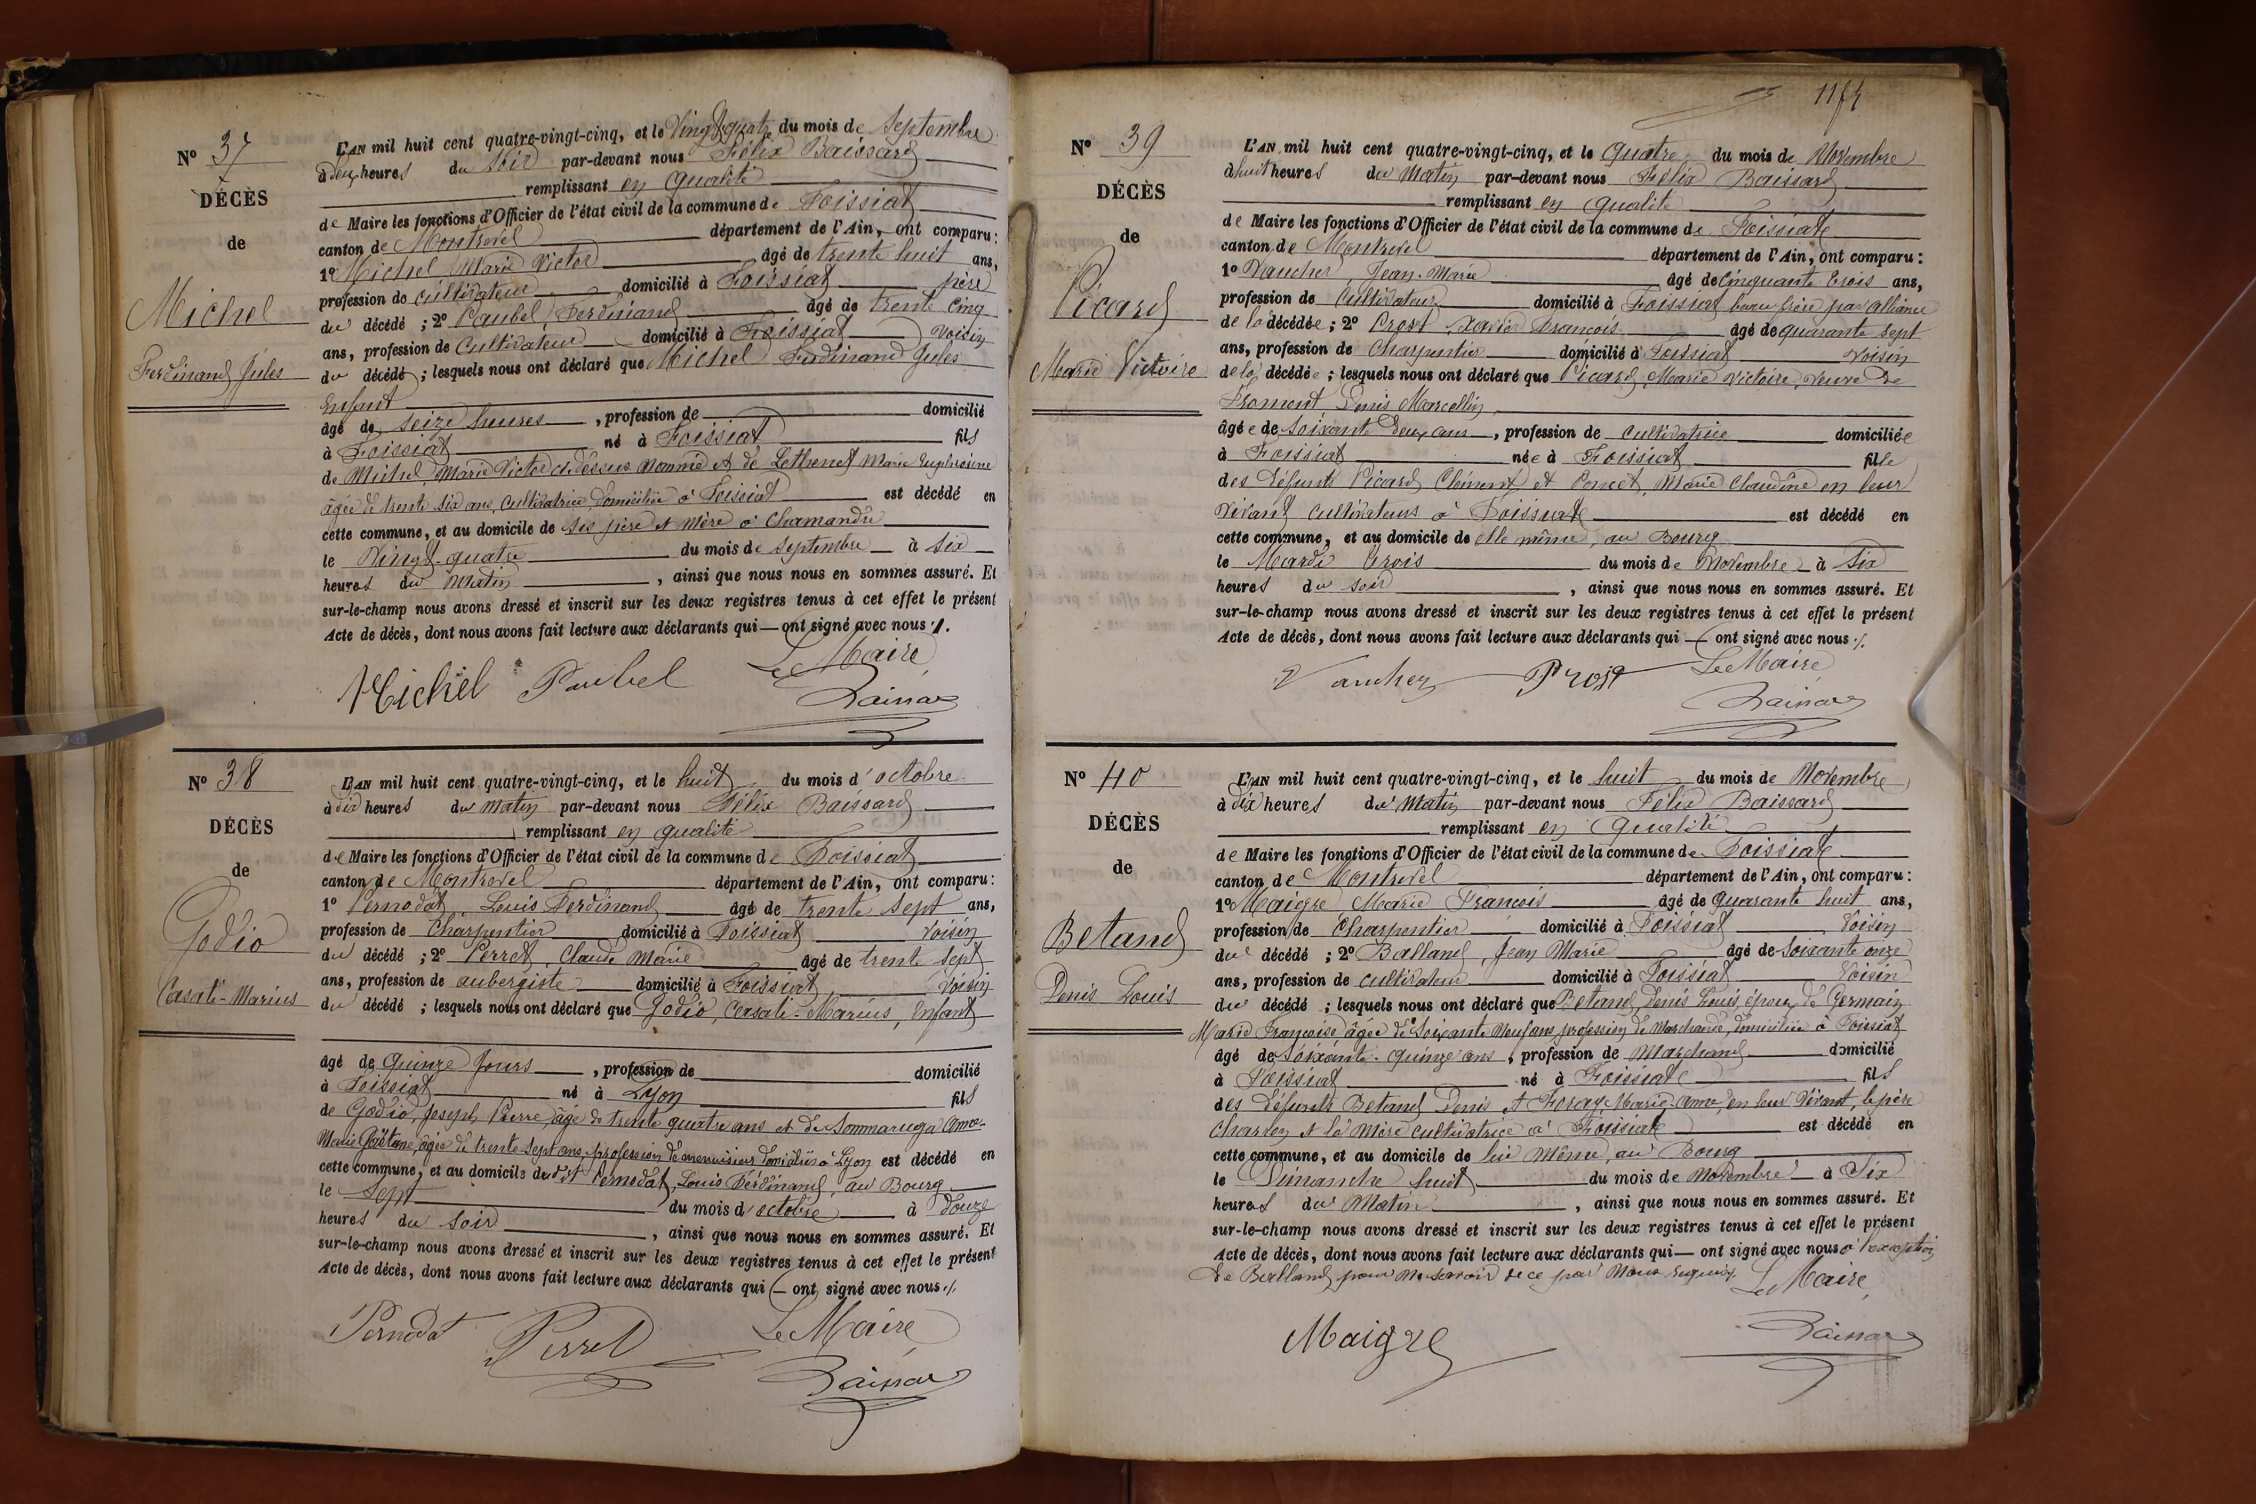 N° 37
DÉCÈS
de
Michel
Ferdinand Jules
L'AN mil huit cent quatre-vingt-cinq, et le Vingt quatre du mois de Septembre
à deux heures du soir par-devant nous Félix Baissard
remplissant en qualité
de Maire les fonctions d'Officier de l'état civil de la commune de Foissiat
canton de Montrevel département de l'Ain, ont comparu :
1° Michel Marie Victor âgé de trente huit ans,
profession de cultivateur domicilié à Foissiat père
du décédé ; 2° Paubel, Ferdinand âgé de trente cinq
ans, profession de Cultivateur domicilié à Foissiat voisin
du décédé ; lesquels nous ont déclaré que Michel Ferdinand Jules
Enfant
âgé de seize heures , profession de domicilié
à Foissiat né à Foissiat fils
de Michel, Marie Victor ci-dessus nommé et de Lethenet Marie Euphrosine
âgée de trente six ans, cultivatrice, domiciliée à Foissiat est décédé en
cette commune, et au domicile de ses père et mère à Chamandre
le Vingt-quatre du mois de septembre à six
heures du Matin , ainsi que nous nous en sommes assuré. Et
sur-le-champ nous avons dressé et inscrit sur les deux registres tenus à cet effet le présent
Acte de décès, dont nous avons fait lecture aux déclarants qui — ont signé avec nous ./.
Michel Paubel Le Maire
Baissard
N° 38
DÉCÈS
de
Godio
Casati-Marius
L'AN mil huit cent quatre-vingt-cinq, et le huit du mois d'octobre
à dix heures du matin par-devant nous Félix Baissard
remplissant en qualité
de Maire les fonctions d'Officier de l'état civil de la commune de Foissiat
canton de Montrevel département de l'Ain, ont comparu :
1° Pernodat, Louis Ferdinand âgé de trente sept ans,
profession de Charpentier domicilié à Foissiat voisin
du décédé ; 2° Perret, Claude Marie âgé de trente sept
ans, profession de aubergiste domicilié à Foissiat voisin
du décédé ; lesquels nous ont déclaré que Godio, Casati-Marius, Enfant
âgé de quinze jours , profession de domicilié
à Foissiat né à Lyon fils
de Godio, Joseph Pierre, âgé de trente quatre ans et de Sommaruga Anne-
Marie Gaëtane, âgée de trente-sept ans, profession de menuisiers domiciliés à Lyon est décédé en
cette commune, et au domicile du dit Pernodat, Louis Ferdinand, au Bourg
le Sept du mois d'octobre à douze
heures du soir , ainsi que nous nous en sommes assuré. Et
sur-le-champ nous avons dressé et inscrit sur les deux registres tenus à cet effet le présent
Acte de décès, dont nous avons fait lecture aux déclarants qui — ont signé avec nous ./.
Pernodat Perret Le Maire
Baissard
N° 39
DÉCÈS
de
Picard
Marie Victoire
L'AN mil huit cent quatre-vingt-cinq, et le quatre du mois de Novembre
à huit heures du Matin par-devant nous Félix Baissard
remplissant en qualité
de Maire les fonctions d'Officier de l'état civil de la commune de Foissiat
canton de Montrevel département de l'Ain, ont comparu :
1° Vaucher, Jean-Marie âgé de Cinquante trois ans,
profession de Cultivateur domicilié à Foissiat beau frère par alliance
de la décédée ; 2° Prost Xavier François âgé de quarante sept
ans, profession de Charpentier domicilié à Foissiat voisin
de la décédée ; lesquels nous ont déclaré que Picard, Marie Victoire, veuve de
Froment Denis Marcellin
âgée de soixante deux ans , profession de cultivatrice domiciliée
à Foissiat née à Foissiat fille
des défunts Picard Clément et Poncet, Marie Claudine en leur
vivant cultivateurs à Foissiat est décédé en
cette commune, et au domicile de elle même, au Bourg
le Mardi trois du mois de Novembre à Six
heures du soir , ainsi que nous nous en sommes assuré. Et
sur-le-champ nous avons dressé et inscrit sur les deux registres tenus à cet effet le présent
Acte de décès, dont nous avons fait lecture aux déclarants qui — ont signé avec nous ./.
Vaucher Prost Le Maire
Baissard
N° 40
DÉCÈS
de
Betand
Denis Louis
L'AN mil huit cent quatre-vingt-cinq, et le huit du mois de Novembre
à dix heures du Matin par-devant nous Félix Baissard
remplissant en qualité
de Maire les fonctions d'Officier de l'état civil de la commune de Foissiat
canton de Montrevel département de l'Ain, ont comparu :
1° Maigre Marie François âgé de quarante huit ans,
profession de Charpentier domicilié à Foissiat voisin
du décédé ; 2° Balland, Jean Marie âgé de soixante onze
ans, profession de cultivateur domicilié à Foissiat voisin
du décédé ; lesquels nous ont déclaré que Betand Denis Louis, époux de Germain
Marie Françoise âgée de soixante neuf ans, profession de Marchande, domiciliée à Foissiat
âgé de soixante-quinze ans , profession de Marchand domicilié
à Foissiat né à Foissiat fils
des défunts Betand Denis et Foray Marie-Anne, en leur vivant, le père
charron et la mère cultivatrice à Foissiat est décédé en
cette commune, et au domicile de lui même, au Bourg
le Dimanche huit du mois de Novembre à Six
heures du Matin , ainsi que nous nous en sommes assuré. Et
sur-le-champ nous avons dressé et inscrit sur les deux registres tenus à cet effet le présent
Acte de décès, dont nous avons fait lecture aux déclarants qui — ont signé avec nous à l'exception
de Balland pour ne savoir de ce par Nous requis ./. Le Maire
Maigre Baissard